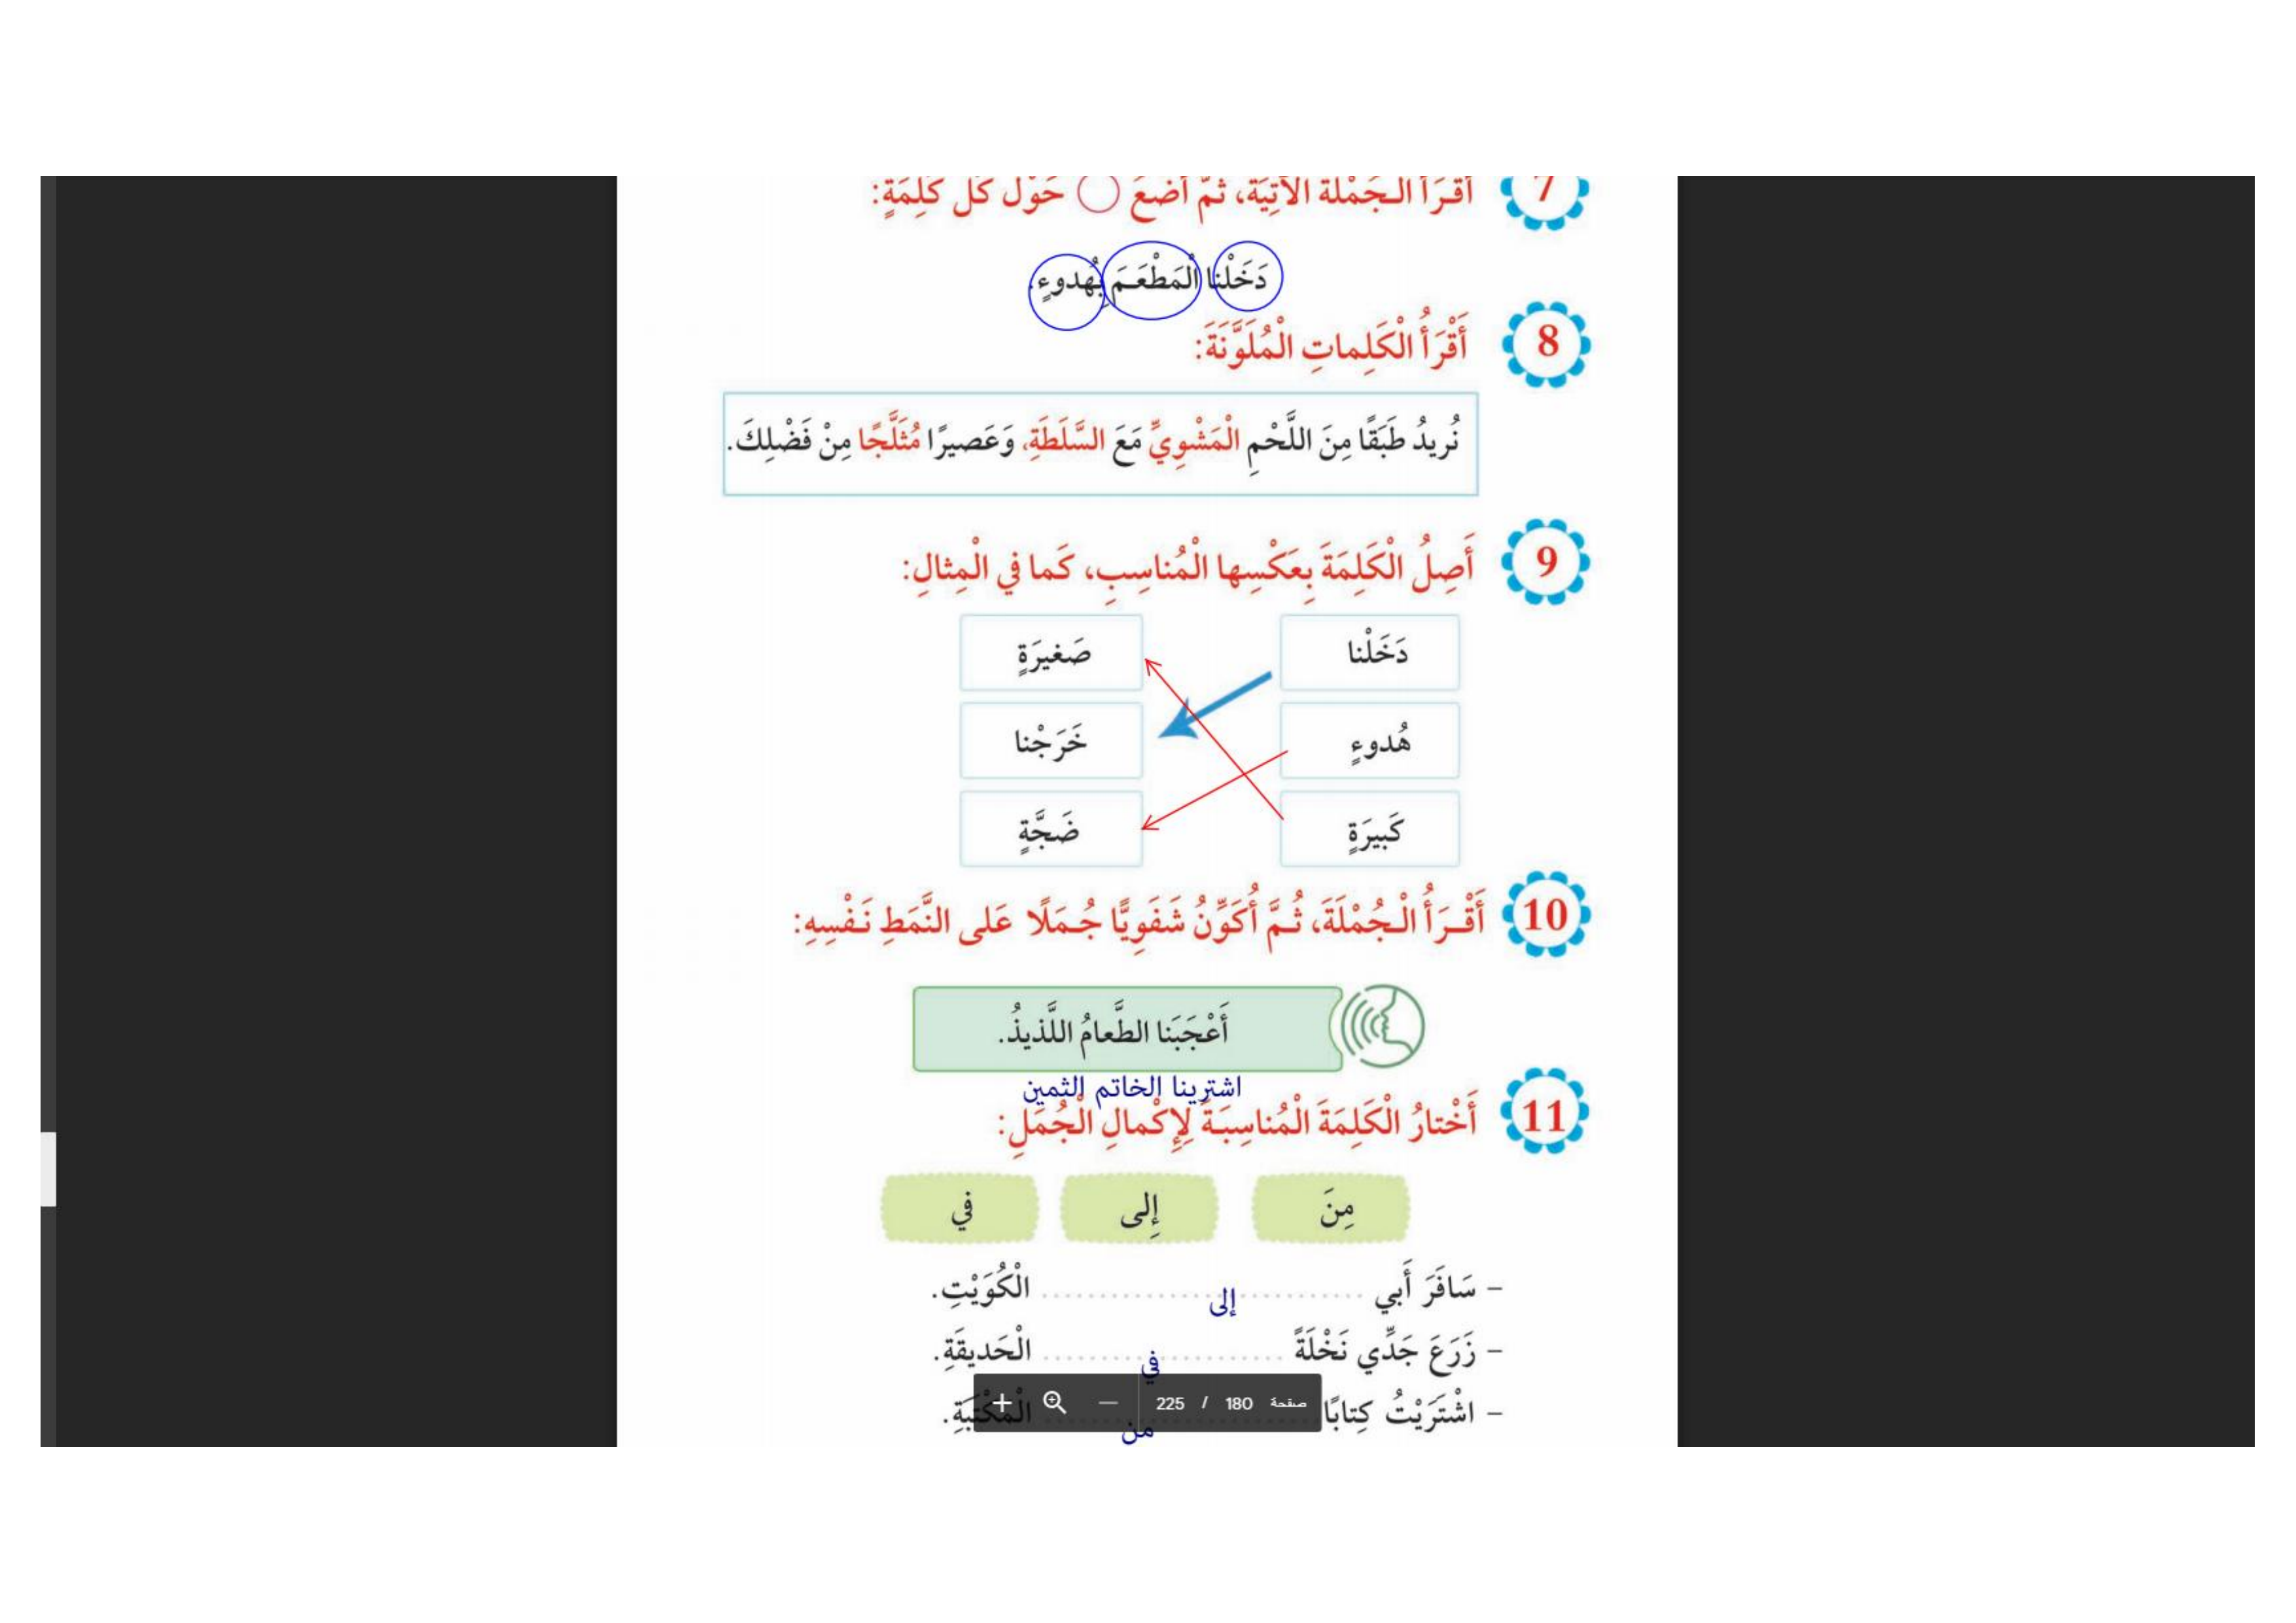 7 أَقْرَأُ الْجُمْلَةَ الْآتِيَةَ، ثُمَّ أَضَعُ ◯ حَوْلَ كُلِّ كَلِمَةٍ:
دَخَلْنا الْمَطْعَمَ بِهُدوءٍ.
8 أَقْرَأُ الْكَلِماتِ الْمُلَوَّنَةَ:
نُريدُ طَبَقًا مِنَ اللَّحْمِ الْمَشْوِيِّ مَعَ السَّلَطَةِ، وَعَصيرًا مُثَلَّجًا مِنْ فَضْلِكَ.
9 أَصِلُ الْكَلِمَةَ بِعَكْسِها الْمُناسِبِ، كَما في الْمِثالِ:
دَخَلْنا صَغيرَةٍ
هُدوءٍ خَرَجْنا
كَبيرَةٍ ضَجَّةٍ
10 أَقْرَأُ الْجُمْلَةَ، ثُمَّ أُكَوِّنُ شَفَوِيًّا جُمَلًا عَلى النَّمَطِ نَفْسِهِ:
أَعْجَبَنا الطَّعامُ اللَّذيذُ.
اشترينا الخاتم الثمين
11 أَخْتارُ الْكَلِمَةَ الْمُناسِبَةَ لِإِكْمالِ الْجُمَلِ:
مِنَ إِلى في
– سَافَرَ أَبي إلى الْكُوَيْتِ.
– زَرَعَ جَدِّي نَخْلَةً في الْحَديقَةِ.
– اشْتَرَيْتُ كِتابًا من الْمَكْتَبَةِ.
صفحة 180 / 225